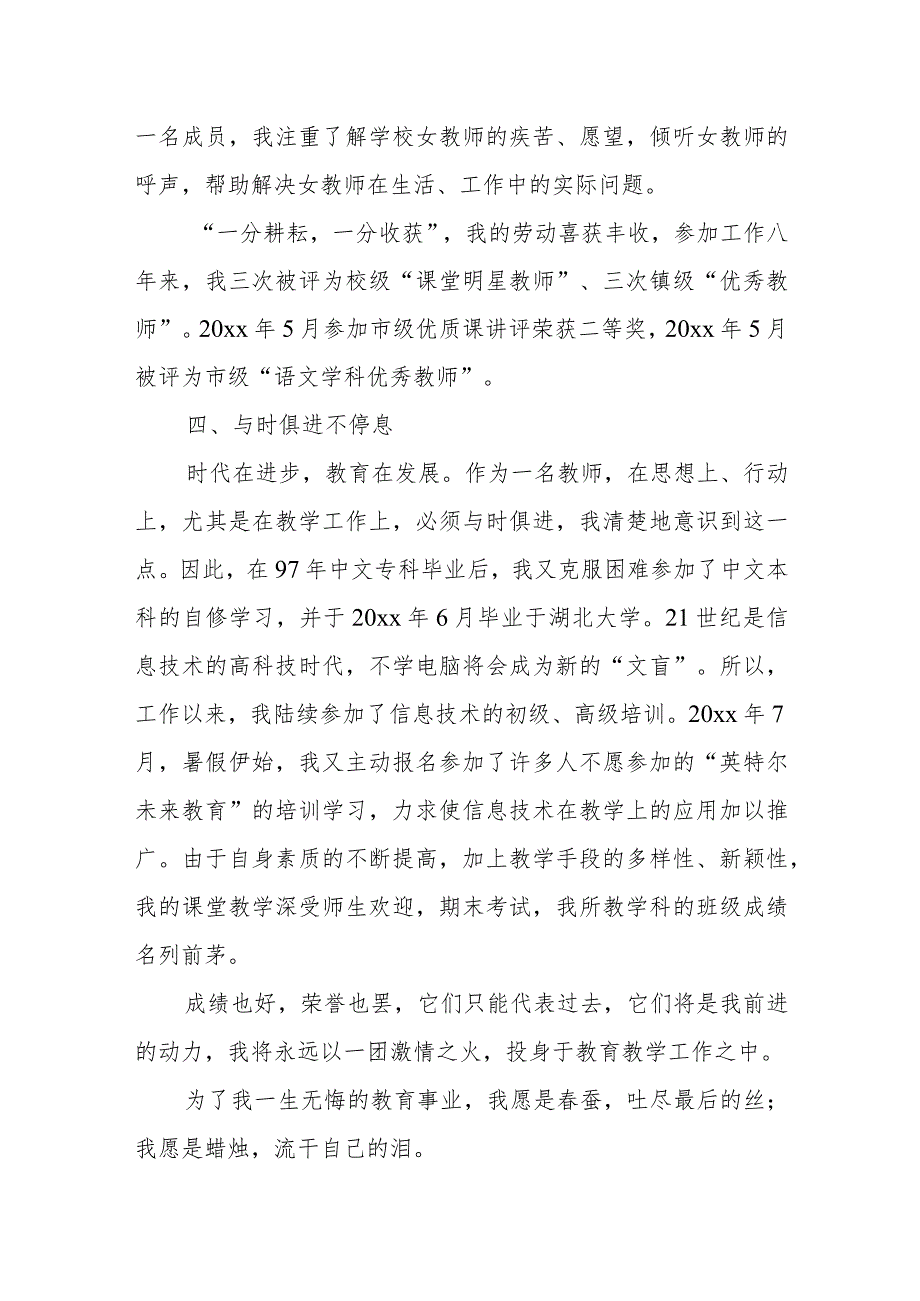 一名成员，我注重了解学校女教师的疾苦、愿望，倾听女教师的
呼声，帮助解决女教师在生活、工作中的实际问题。
“一分耕耘，一分收获”，我的劳动喜获丰收，参加工作八
年来，我三次被评为校级“课堂明星教师”、三次镇级“优秀教
师”。20xx 年 5 月参加市级优质课讲评荣获二等奖，20xx 年 5 月
被评为市级“语文学科优秀教师”。
四、与时俱进不停息
时代在进步，教育在发展。作为一名教师，在思想上、行动
上，尤其是在教学工作上，必须与时俱进，我清楚地意识到这一
点。因此，在 97 年中文专科毕业后，我又克服困难参加了中文本
科的自修学习，并于 20xx 年 6 月毕业于湖北大学。21 世纪是信
息技术的高科技时代，不学电脑将会成为新的“文盲”。所以，
工作以来，我陆续参加了信息技术的初级、高级培训。20xx 年 7
月，暑假伊始，我又主动报名参加了许多人不愿参加的“英特尔
未来教育”的培训学习，力求使信息技术在教学上的应用加以推
广。由于自身素质的不断提高，加上教学手段的多样性、新颖性，
我的课堂教学深受师生欢迎，期末考试，我所教学科的班级成绩
名列前茅。
成绩也好，荣誉也罢，它们只能代表过去，它们将是我前进
的动力，我将永远以一团激情之火，投身于教育教学工作之中。
为了我一生无悔的教育事业，我愿是春蚕，吐尽最后的丝；
我愿是蜡烛，流干自己的泪。